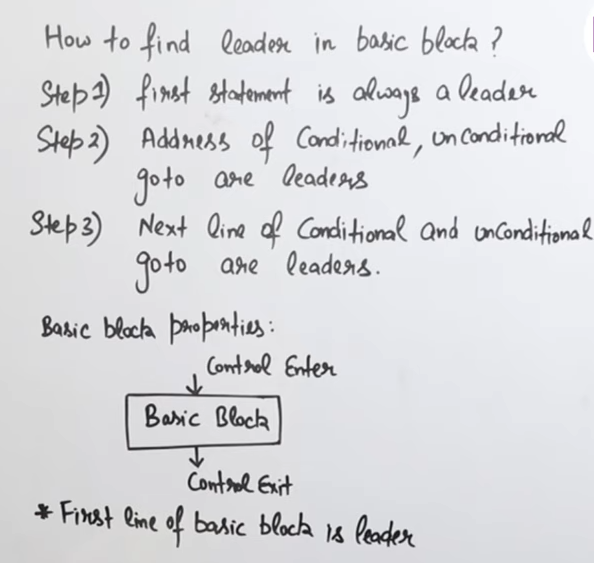 How to find leader in basic block?
Step 1) first statement is always a leader
Step 2) Address of Conditional, unconditional
goto are leaders
Step 3) Next line of Conditional and unconditional
goto are leaders.
Basic block properties:
Control Enter
Basic Block
Control Exit
* First line of basic block is leader